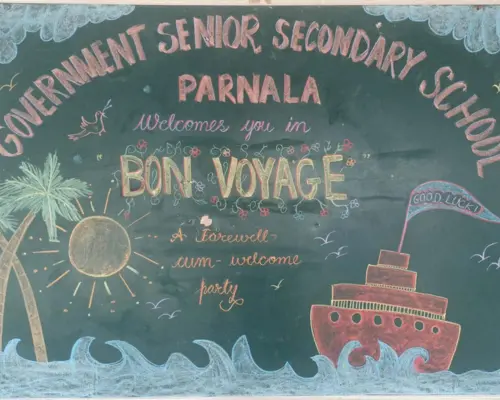 GOVERNMENT SENIOR SECONDARY SCHOOL
PARNALA
Welcomes you in
"BON VOYAGE"
A Farewell
cum-welcome
party
GOOD LUCK!